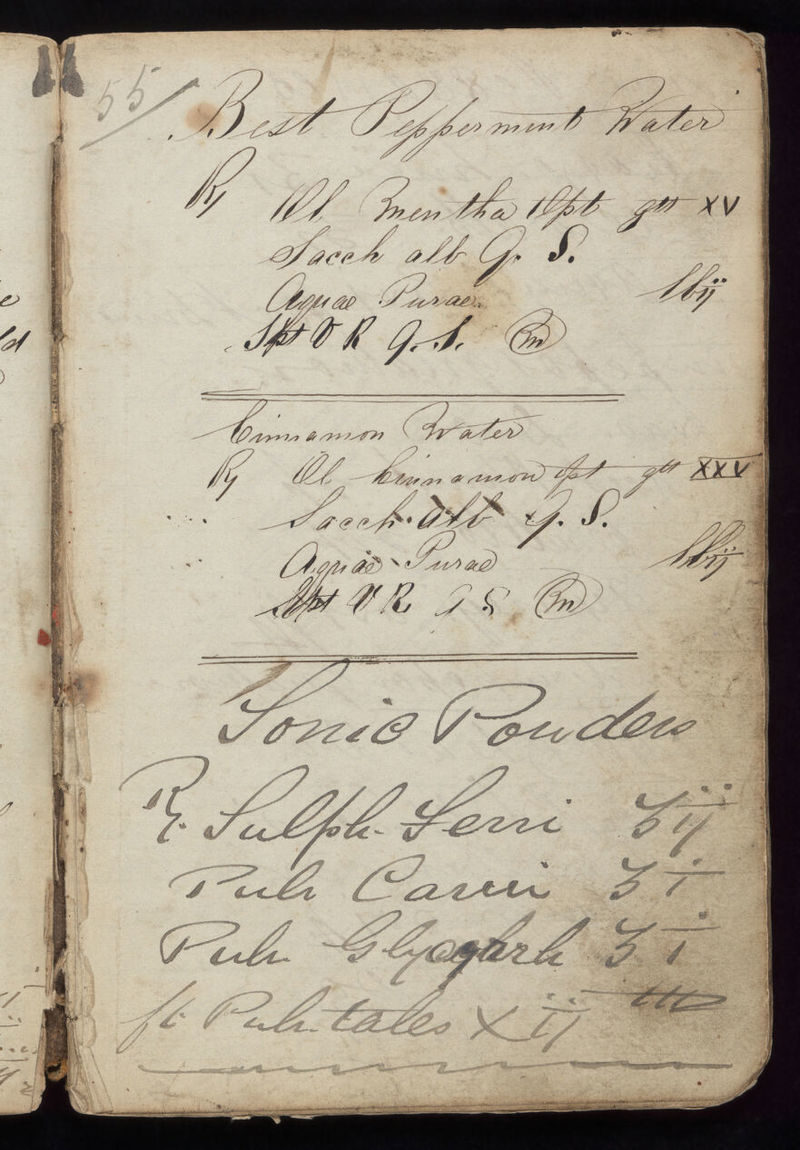 55
Best Peppermint Water
℞ Ol Mentha Pipt gtt XV
Sacch alb Q. S.
Aquae Purae lbij
Spt V R Q. S. m
Cinnamon Water
℞ Ol Cinnamon gtt XXV
Sacch. alb Q. S.
Aquae Purae lbij
Spt V R Q S m
Tonic Powders
℞. Sulph. Ferri ʒij
Pulv Carui ʒi
Pulv. ʒi
ft Pulv. tales Xij